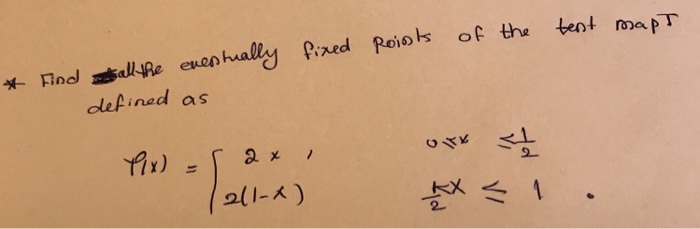 * Find all the eventually fixed Points of the tent map T
defined as
T(x) = { 2x , 0 ≤ x ≤ 1/2
2(1-x) 1/2 < x ≤ 1 .